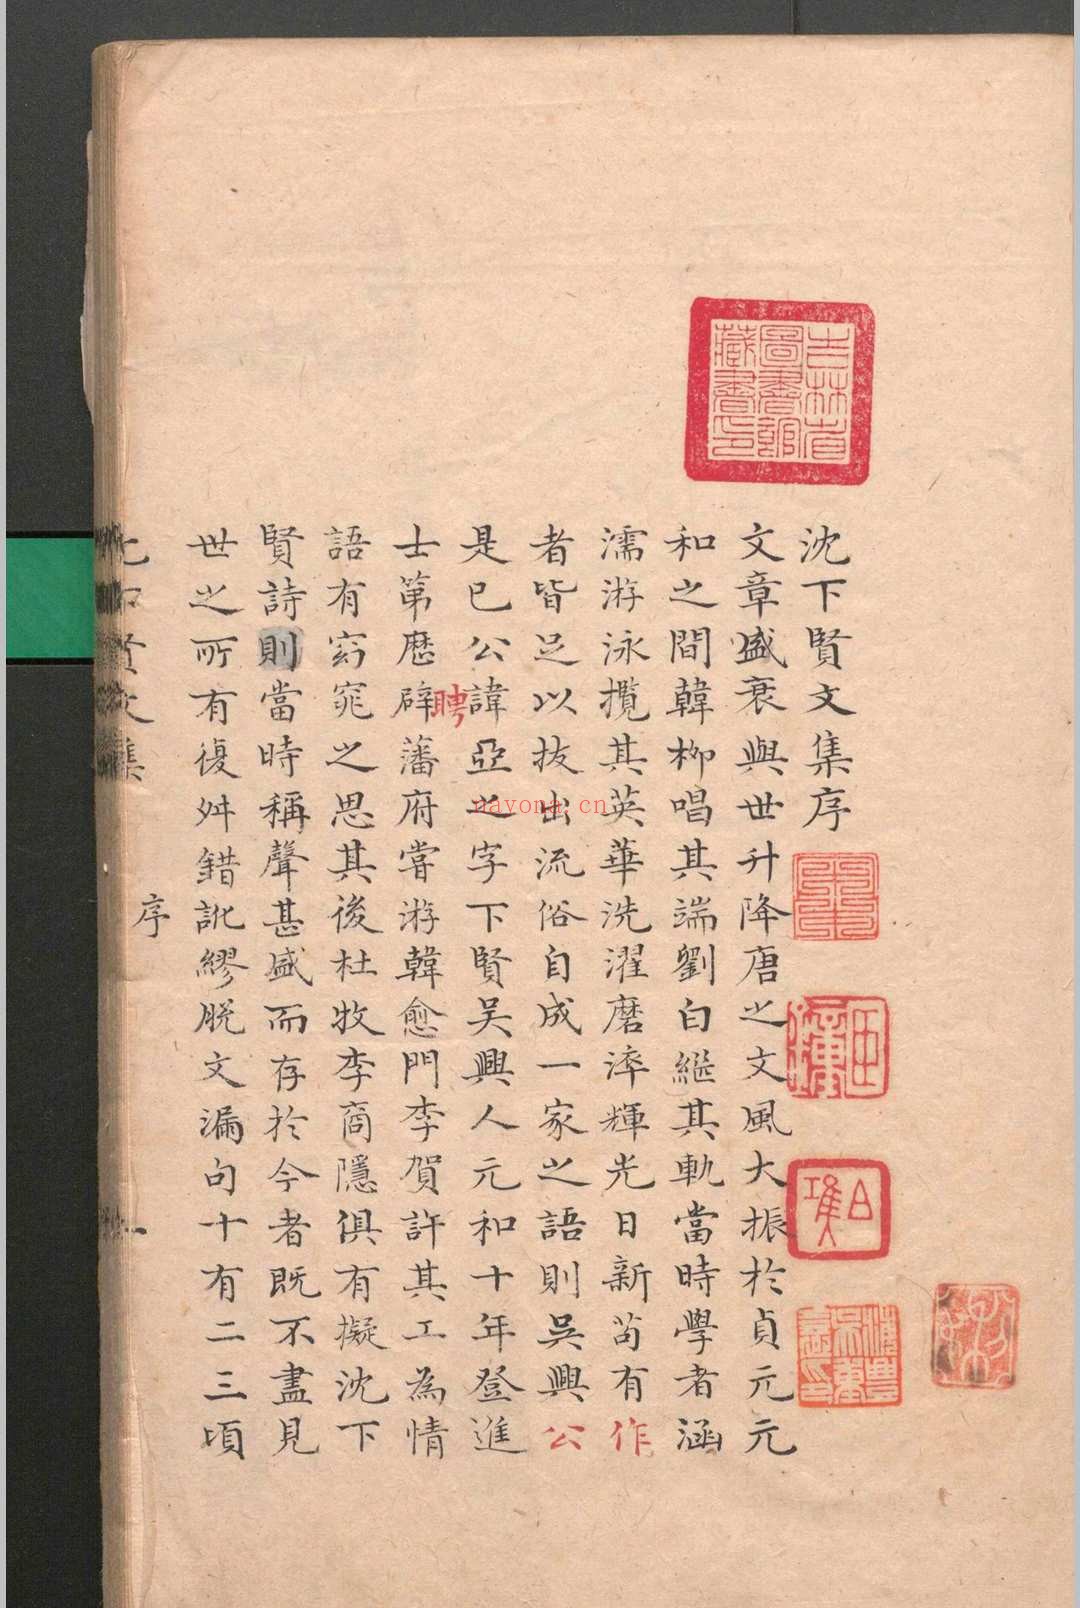 沈下賢文集序
文章盛衰與世升降唐之文風大振於貞元元
和之間韓柳唱其端劉白繼其軌當時學者涵
濡游泳攬其英華洗濯磨淬輝光日新苟有作
者皆足以拔出流俗自成一家之語則吳興公
是已公諱亞之字下賢吳興人元和十年登進
士第歷辟藩府嘗游韓愈門李賀許其工為情
聘
語有窈窕之思其後杜牧李商隱俱有擬沈下
賢詩則當時稱聲甚盛而存於今者既不盡見
世之所有復舛錯訛繆脫文漏句十有二三頃
序
一
吉林省
圖書館
藏書印
nayona.cn